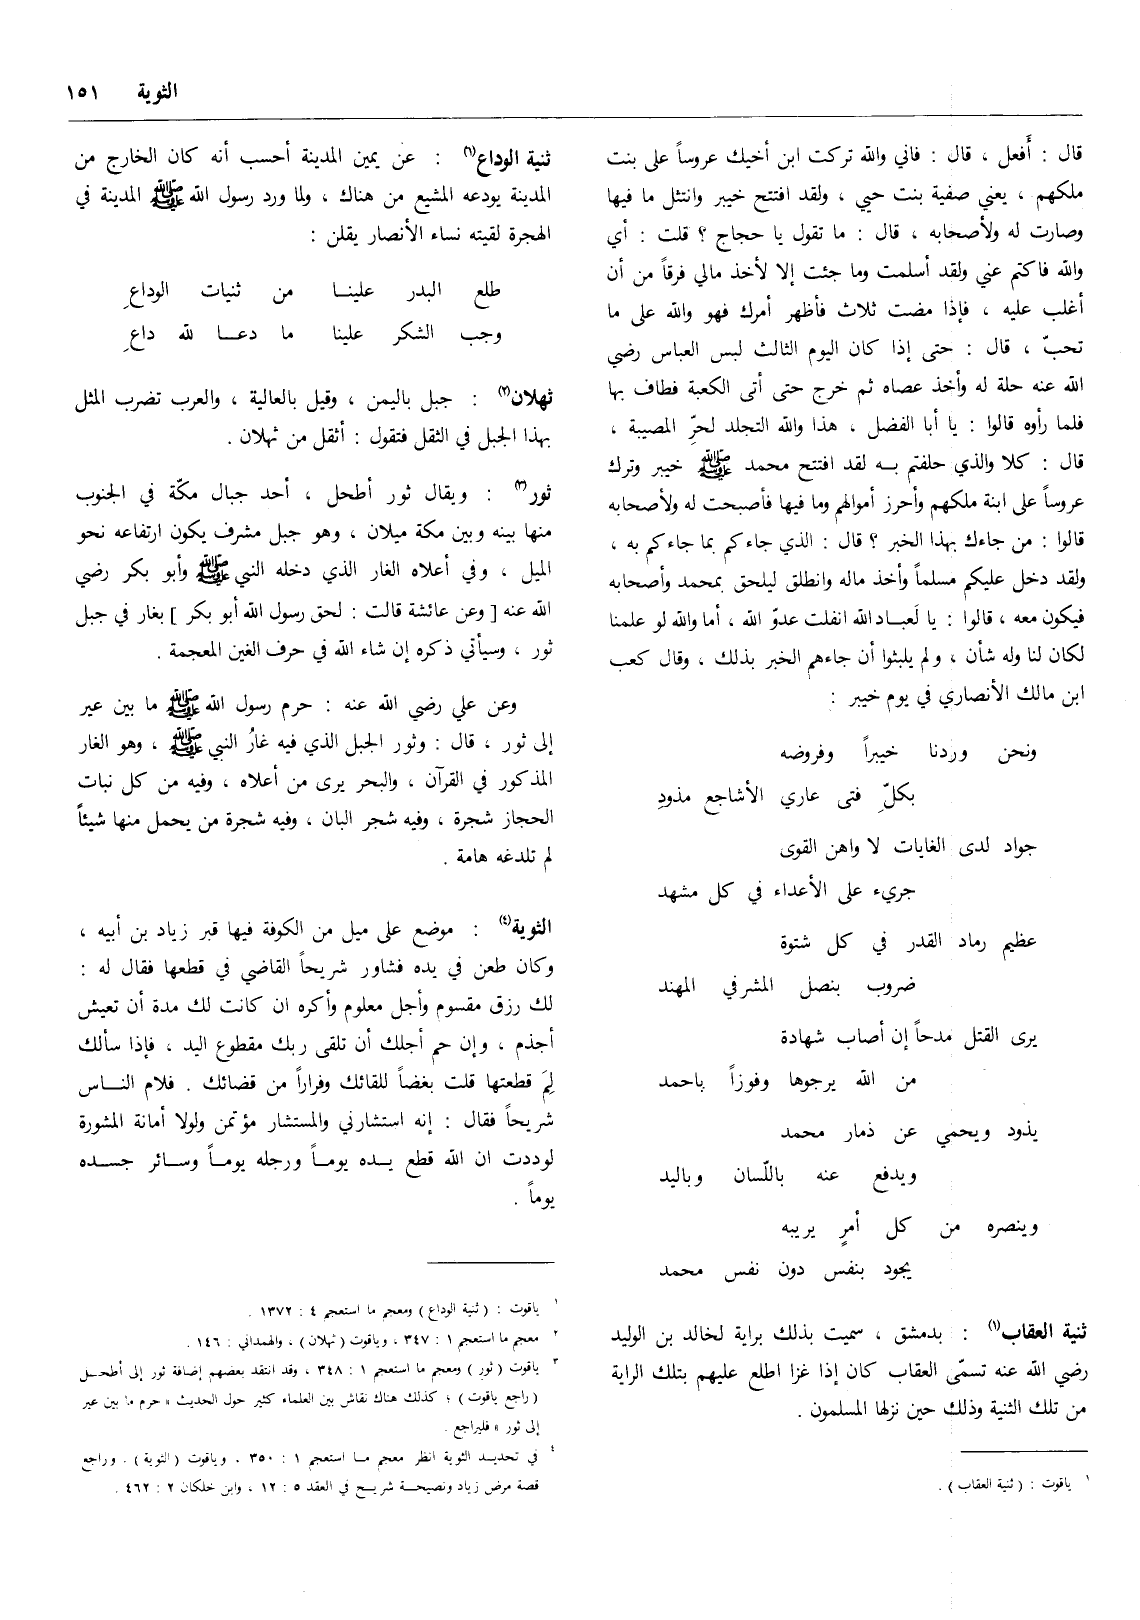 الثوية ١٥١
قال : أَفعل ، قال : فاني والله تركت ابن أخيك عروساً على بنت
ملكهم ، يعني صفية بنت حيي ، ولقد افتتح خيبر وانتثل ما فيها
وصارت له ولأصحابه ، قال : ما تقول يا حجاج ؟ قلت : أي
والله فاكتم عني ولقد أسلمت وما جئت إلا لأخذ مالي فرقاً من أن
أغلب عليه ، فإذا مضت ثلاث فأظهر أمرك فهو والله على ما
تحبّ ، قال : حتى إذا كان اليوم الثالث لبس العباس رضي
الله عنه حلة له وأخذ عصاه ثم خرج حتى أتى الكعبة فطاف بها
فلما رأوه قالوا : يا أبا الفضل ، هذا والله التجلد لحرِّ المصيبة ،
قال : كلا والذي حلفتم بـه لقد افتتح محمد ﷺ خيبر وترك
عروساً على ابنة ملكهم وأحرز أموالهم وما فيها فأصبحت له ولأصحابه
قالوا : من جاءك بهذا الخبر ؟ قال : الذي جاءكم بما جاءكم به ،
ولقد دخل عليكم مسلماً وأخذ ماله وانطلق ليلحق بمحمد وأصحابه
فيكون معه ، قالوا : يا لَعبـاد الله انفلت عدوّ الله ، أما والله لو علمنا
لكان لنا وله شأن ، ولم يلبثوا أن جاءهم الخبر بذلك ، وقال كعب
ابن مالك الأنصاري في يوم خيبر :
ونحن وردنا خيبراً وفروضه
بكلّ فتى عاري الأشاجع مذودِ
جواد لدى الغايات لا واهن القوى
جريء على الأعداء في كل مشهد
عظيم رماد القدر في كل شتوة
ضروب بنصل المشرفي المهند
يرى القتل مدحاً إن أصاب شهادة
من الله يرجوها وفوزاً باحمد
يذود ويحمي عن ذمار محمد
ويدفع عنه باللّسان وباليد
وينصره من كل أمرٍ يريبه
يجود بنفس دون نفس محمد
ثنية العقاب(١) : بدمشق ، سميت بذلك براية لخالد بن الوليد
رضي الله عنه تسمّى العقاب كان إذا غزا اطلع عليهم بتلك الراية
من تلك الثنية وذلك حين نزلها المسلمون .
١ ياقوت : ( ثنية العقاب ) .
ثنية الوداع(١) : عن يمين المدينة أحسب أنه كان الخارج من
المدينة يودعه المشيع من هناك ، ولما ورد رسول الله ﷺ المدينة في
الهجرة لقيته نساء الأنصار يقلن :
طلع البدر علينـا من ثنيات الوداعِ
وجب الشكر علينا ما دعـا لله داعِ
ثهلان(٢) : جبل باليمن ، وقيل بالعالية ، والعرب تضرب المثل
بهذا الجبل في الثقل فتقول : أثقل من ثهلان .
ثور(٣) : ويقال ثور أطحل ، أحد جبال مكّة في الجنوب
منها بينه وبين مكة ميلان ، وهو جبل مشرف يكون ارتفاعه نحو
الميل ، وفي أعلاه الغار الذي دخله النبي ﷺ وأبو بكر رضي
الله عنه [ وعن عائشة قالت : لحق رسول الله أبو بكر ] بغار في جبل
ثور ، وسيأتي ذكره إن شاء الله في حرف الغين المعجمة .
وعن علي رضي الله عنه : حرم رسول الله ﷺ ما بين عير
إلى ثور ، قال : وثور الجبل الذي فيه غارُ النبي ﷺ ، وهو الغار
المذكور في القرآن ، والبحر يرى من أعلاه ، وفيه من كل نبات
الحجاز شجرة ، وفيه شجر البان ، وفيه شجرة من يحمل منها شيئاً
لم تلدغه هامة .
الثوية(٤) : موضع على ميل من الكوفة فيها قبر زياد بن أبيه ،
وكان طعن في يده فشاور شريحاً القاضي في قطعها فقال له :
لك رزق مقسوم وأجل معلوم وأكره ان كانت لك مدة أن تعيش
أجذم ، وإن حم أجلك أن تلقى ربك مقطوع اليد ، فإذا سألك
لِمَ قطعتها قلت بغضاً للقائك وفراراً من قضائك . فلام النـاس
شريحاً فقال : إنه استشارني والمستشار مؤتمن ولولا أمانة المشورة
لوددت ان الله قطع يـده يومـاً ورجله يومـاً وسـائر جسـده
يوماً .
١ ياقوت : ( ثنية الوداع ) ومعجم ما استعجم ٤ : ١٣٧٢ .
٢ معجم ما استعجم ١ : ٣٤٧ ، وياقوت ( ثهلان ) ، والهمداني : ١٤٦ .
٣ ياقوت ( ثور ) ومعجم ما استعجم ١ : ٣٤٨ ، وقد انتقد بعضهم إضافة ثور إلى أطحـل
( راجع ياقوت ) ؛ كذلك هناك نقاش بين العلماء كثير حول الحديث « حرم ما بين عير
إلى ثور » فليراجع .
٤ في تحديـد الثوية انظر معجم مـا استعجم ١ : ٣٥٠ . وياقوت ( الثوية ) . وراجع
قصة مرض زياد ونصيحـة شريـح في العقد ٥ : ١٢ ، وابن خلكان ٢ : ٤٦٢ .